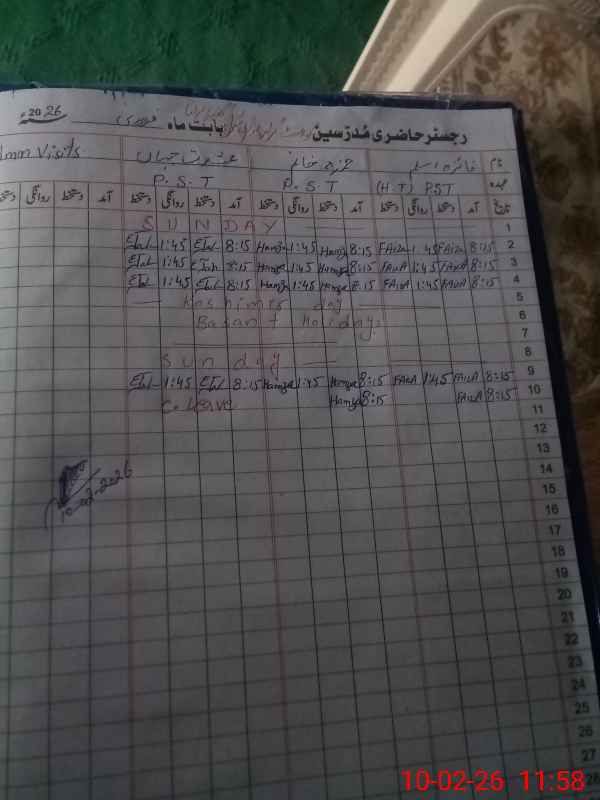 رجسٹر حاضری مدرسین بابت ماہ فروری 2026ء
نام فائزہ اسلم حمزہ خانم عشرت جہاں Visits
عہدہ (H.T) PST P.S.T P.S.T
تاریخ آمد دستخط روانگی دستخط آمد دستخط روانگی دستخط آمد دستخط روانگی دستخط آمد دستخط روانگی دستخط
1 SUNDAY
2 8:15 FAIZA 1:45 FAIZA 8:15 Hamza 1:45 Hamza 8:15 1:45
3 8:15 FAIZA 1:45 FAIZA 8:15 Hamza 1:45 Hamza 8:15 1:45
4 8:15 FAIZA 1:45 FAIZA 8:15 Hamza 1:45 Hamza 8:15 1:45
5 Kashimer day
6 Basant holiday
7
8 Sunday
9 8:15 FAIZA 1:45 FAIZA 8:15 Hamza 1:45 Hamza 8:15 1:45
10 8:15 FAIZA 8:15 Hamza C. Leave
11
12
13
14
15
10-02-2026
16
17
18
19
20
21
22
23
24
25
26
27
28
10-02-26 11:58